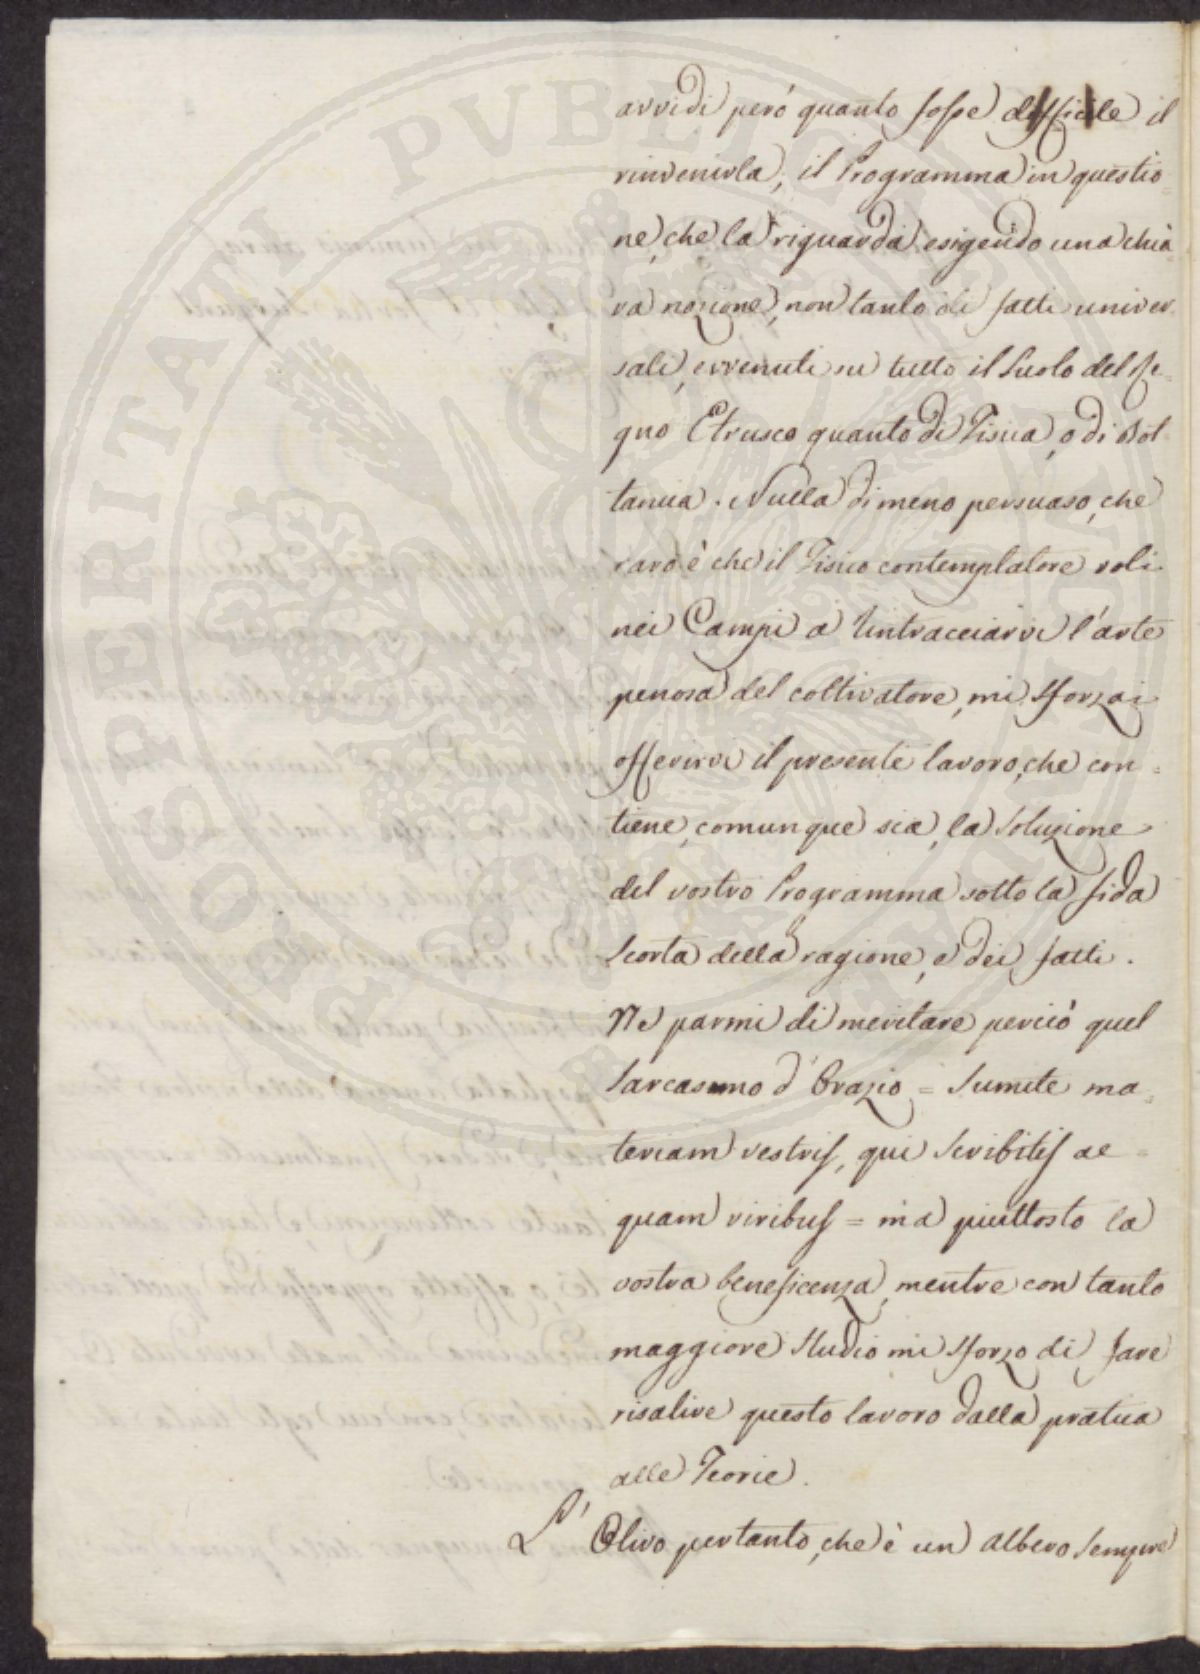 avvidi però quanto fosse difficile il
rinvenirla, il Programma in questio=
ne, che la riguarda, esigendo una chia=
ra nozione, non tanto di fatti univer=
sali, evvenuti su tutto il suolo del Re=
gno Etrusco quanto di Fisica, o di Bot=
tanica. Nulla di meno persuaso, che
raro è che il Fisico contemplatore voli
nei Campi a rintracciarvi l'arte
penosa del coltivatore, mi sforzai
offerirvi il presente lavoro, che con=
tiene, comunque sia, la soluzione
del vostro Programma sotto la fida
scorta della ragione, e dei fatti.
Ne parmi di meritare perciò quel
sarcasmo d'Orazio = Sumite ma=
teriam vestris, qui scribitis ae=
quam viribus = ma piuttosto la
vostra beneficenza, mentre con tanto
maggiore studio mi sforzo di fare
risalire questo lavoro dalla pratica
alle Teorie.
L'Olivo pertanto, che è un albero sempre
PROSPERITATI PUBLICAE